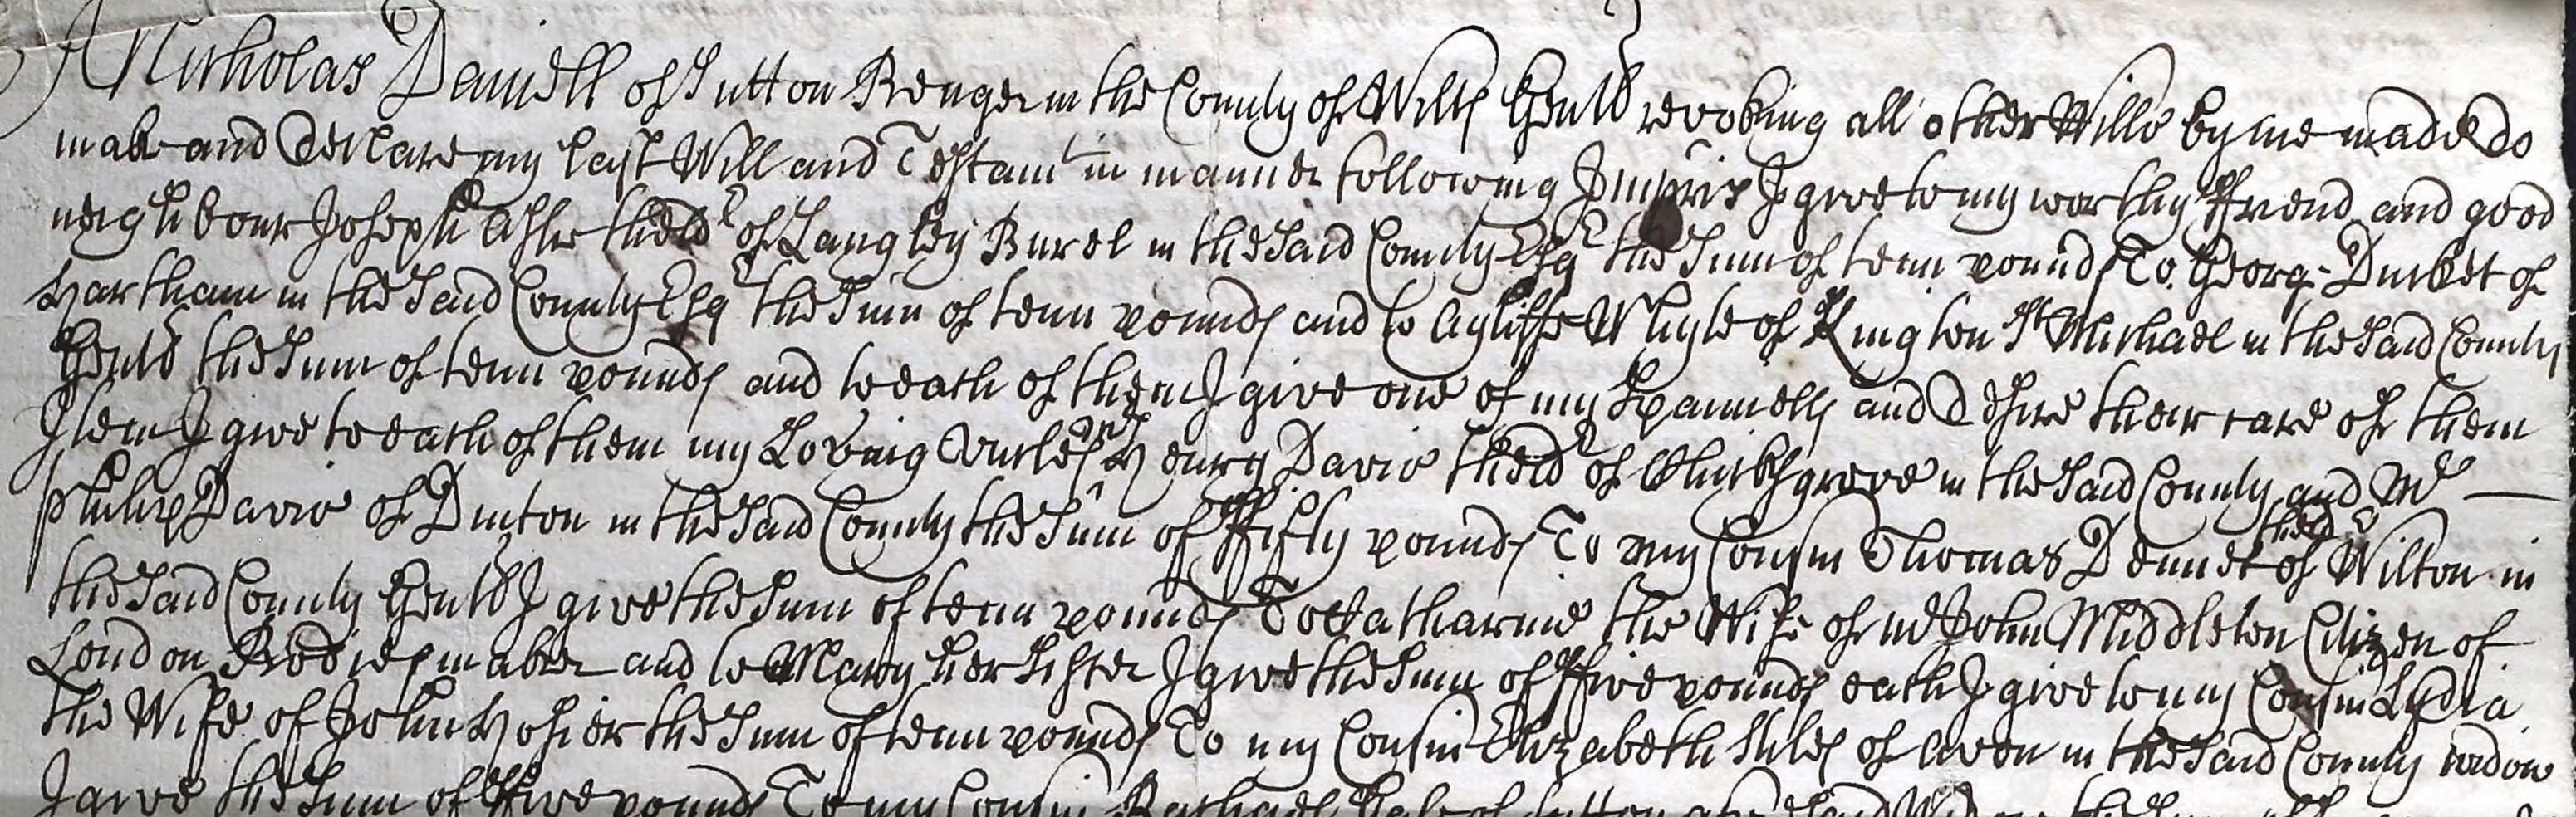 I Nicholas Daniell of Sutton Benger in the County of Wilts Gent revoking all other Wills by me made do
make and declare my last Will and Testamt in manner following Impris I give to my worthy ffreind and good
neighbour Joseph Ashe the eldr of Langley Burel in the said County Esqr the sum of tenn pounds To George Ducket of
Hartham in the said County Esqr the sum of tenn pounds and to Ayliffe White of Kington St Michael in the said County
Gent the sum of tenn pounds and to each of them I give one of my Spaniells and desire their care of them
Item I give to each of them my Loving Uncles Mr Henry Davis the eldr of Chicksgrove in the said County and Mr
Philip Davis of Dinton in the said County the sum of ffifty pounds To my Cousin Thomas Bennet the eldr of Wilton in
the said County Gent I give the sum of tenn pounds To Katharine the Wife of Mr John Middleton Citizen of
London Bodiesmaker and to Mary her Sister I give the sum of ffive pounds each I give to my Cousin Lydia
the Wife of John Hosier the sum of tenn pounds To my Cousin Elizabeth Stiles of Avon in the said County widow
I give the sum of ffive pounds To my Cousin Rachael of Sutton aforesaid Widow the sum of